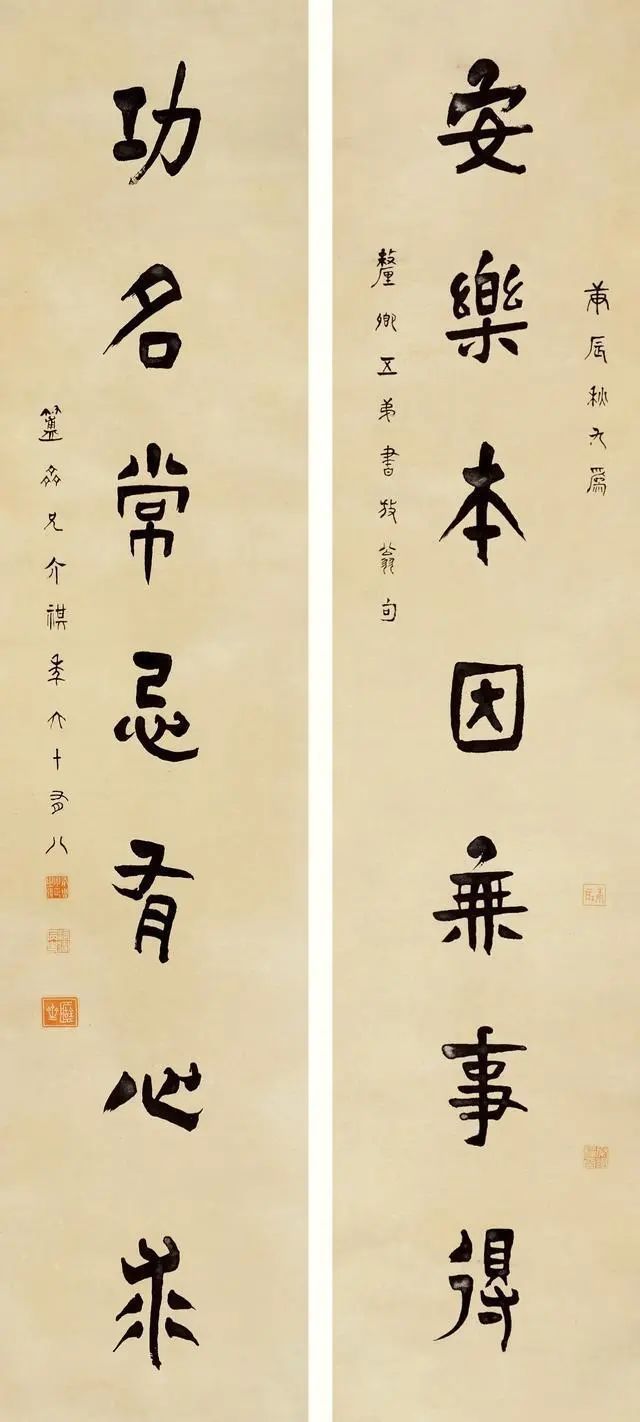 庚辰秋九爲
安樂本因無事得
釐卿五弟書放翁句
功名常忌有心求
簠齋兄介祺年六十有八